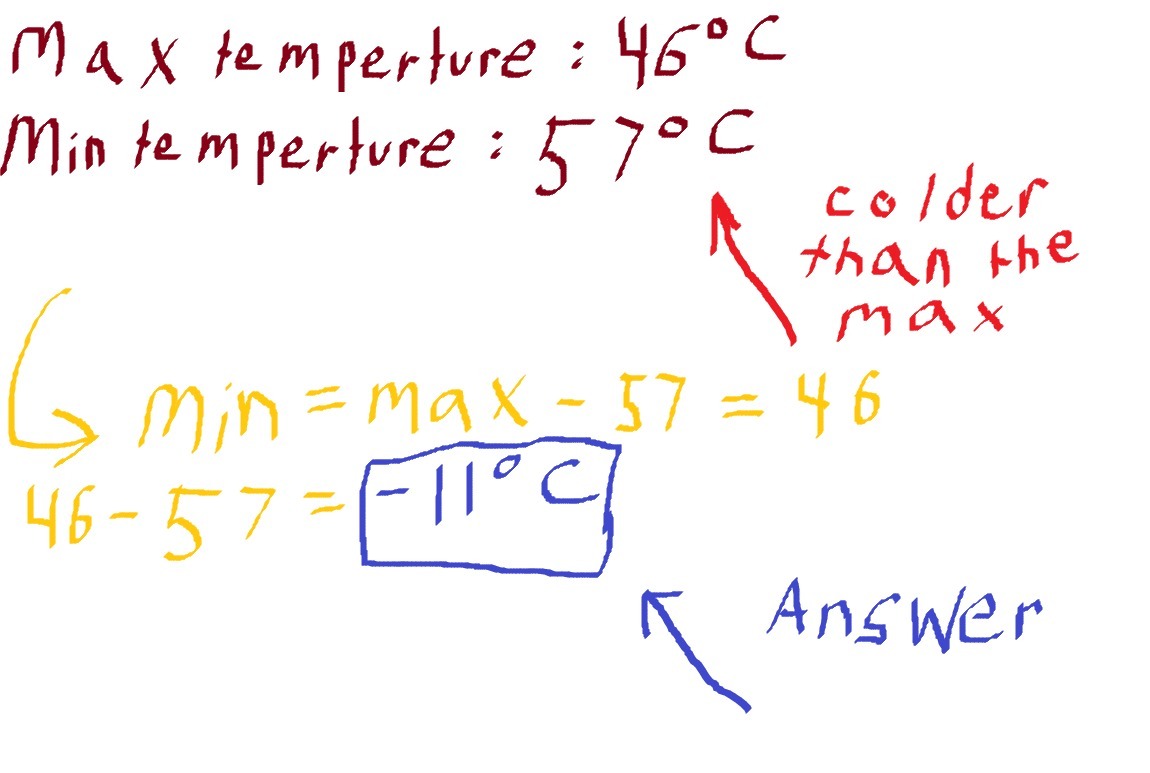 Max temperture : 46°C
Min temperture : 57°C
colder
than the
max
min = max - 57 = 46
46 - 57 = -11°C
Answer